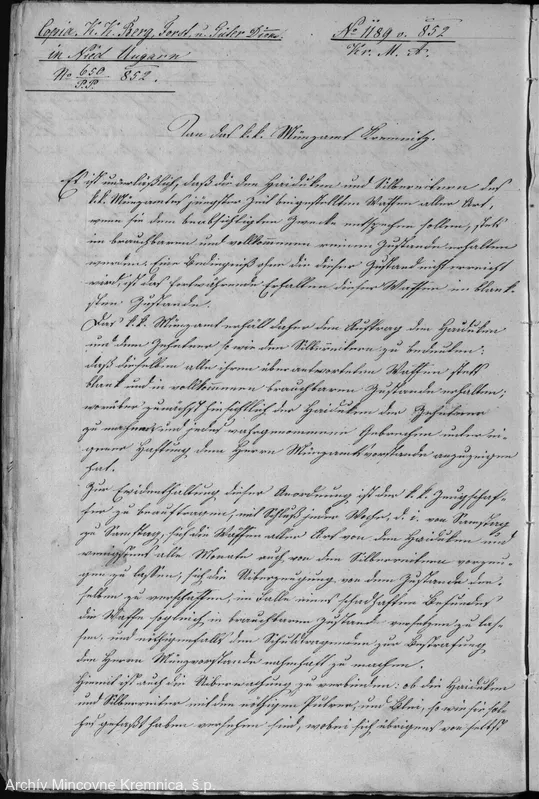 Copia. K. K. Berg, Forst. u. Güter Dion.
in Nied Ungarn
No 650/P.P. 852.
No 1189 v. 852
Kr. M. A.
An das k.k. Münzamt Kremnitz.
Es ist unerläßlich, daß die den Haiduken und Silberreitern des
k.k. Münzamtes jüngster Zeit beigestellten Waffen aller Art,
wenn sie dem beabsichtigten Zwecke entsprechen sollen, stets
im brauchbaren und vollkommen reinen Zustande erhalten
werden. Eine Bedingniß ohne die dieser Zustand nicht erreicht
wird, ist das fortwährende Erhalten dieser Waffen im blank-
sten Zustande.
Das k.k. Münzamt erhält daher den Auftrag den Haiduken
und dem Zehntner so wie den Silberreitern zu bedeuten:
daß dieselben alle ihnen überantworteten Waffen stets
blank und in vollkommen brauchbaren Zustande erhalten,
worüber zunächst hinsichtlich der Haiduken der Zehntner
zu wachen und jedes wahrgenommene Gebrechen unter ei-
gener Haftung dem Herrn Münzamtsvorstande anzuzeigen
hat.
Zur Evidenthaltung dieser Anordnung ist der k.k. Zeugschaf-
fer zu beauftragen, mit Schluß jeder Woche, d. i. von Samstag
zu Samstag, sich die Waffen aller Art von den Haiduken und
wenigstens alle Monate auch von den Silberreitern vorzei-
gen zu lassen, sich die Ueberzeugung von dem Zustande der-
selben zu verschaffen, im Falle eines schadhaften Befundes
die Waffe sogleich in brauchbaren Zustand versetzen zu las-
sen, und nöthigenfalls den Schuldtragenden zur Bestrafung
dem Herrn Münzvorstande namhaft zu machen.
Hiemit ist auch die Ueberwachung zu verbinden: ob die Haiduken
und Silberreiter mit den nöthigen Pulver, und Blei, so wie sie sol-
ches gefaßt haben versehen sind, wobei sich übrigens von selbst
Archív Mincovne Kremnica, š.p.